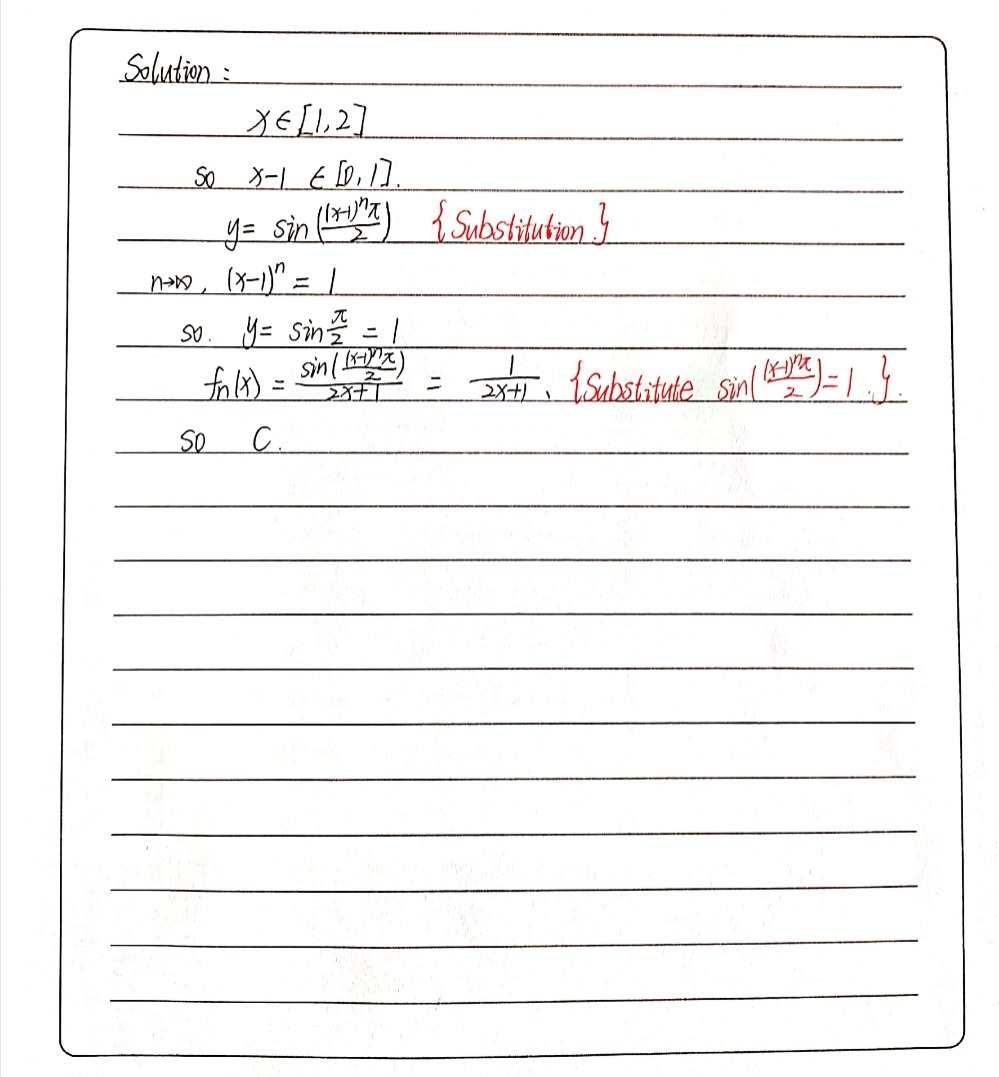 Solution :
x∈[1,2]
so x-1 ∈ [0,1].
y= sin((x-1)^nπ/2) {Substitution}
n→∞, (x-1)^n = 1
so. y= sin π/2 = 1
fn(x) = sin((x-1)^nπ/2)/2x+1 = 1/2x+1. {Substitute sin((x-1)^nπ/2)=1.}.
so C.